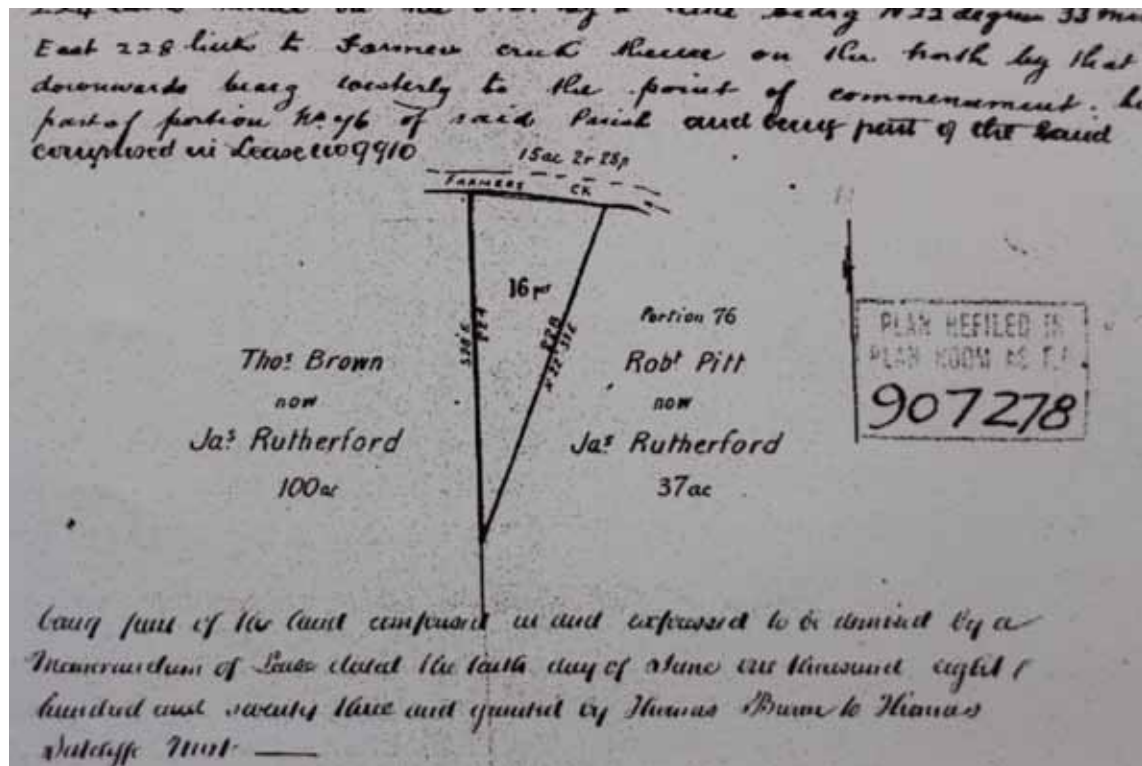 East 228 links to Farmers creek thence on the North by that
downwards bearg westerly to the point of commencement.
part of portion No 76 of said Parish and being part of the land
comprised in Lease no 9910
15ac 2r 28p
FARMERS CK
16 per
224
228
N 22° 33' E
Portion 76
Thos. Brown
now
Jas. Rutherford
100ac
Robt Pitt
now
Jas. Rutherford
37ac
PLAN REFILED IN
PLAN ROOM AS F.P.
907278
being part of the land comprised in and expressed to be demised by a
Memorandum of Lease dated the tenth day of June one thousand eight
hundred and seventy three and granted by Thomas Brown to Thomas
Sutcliffe Mort